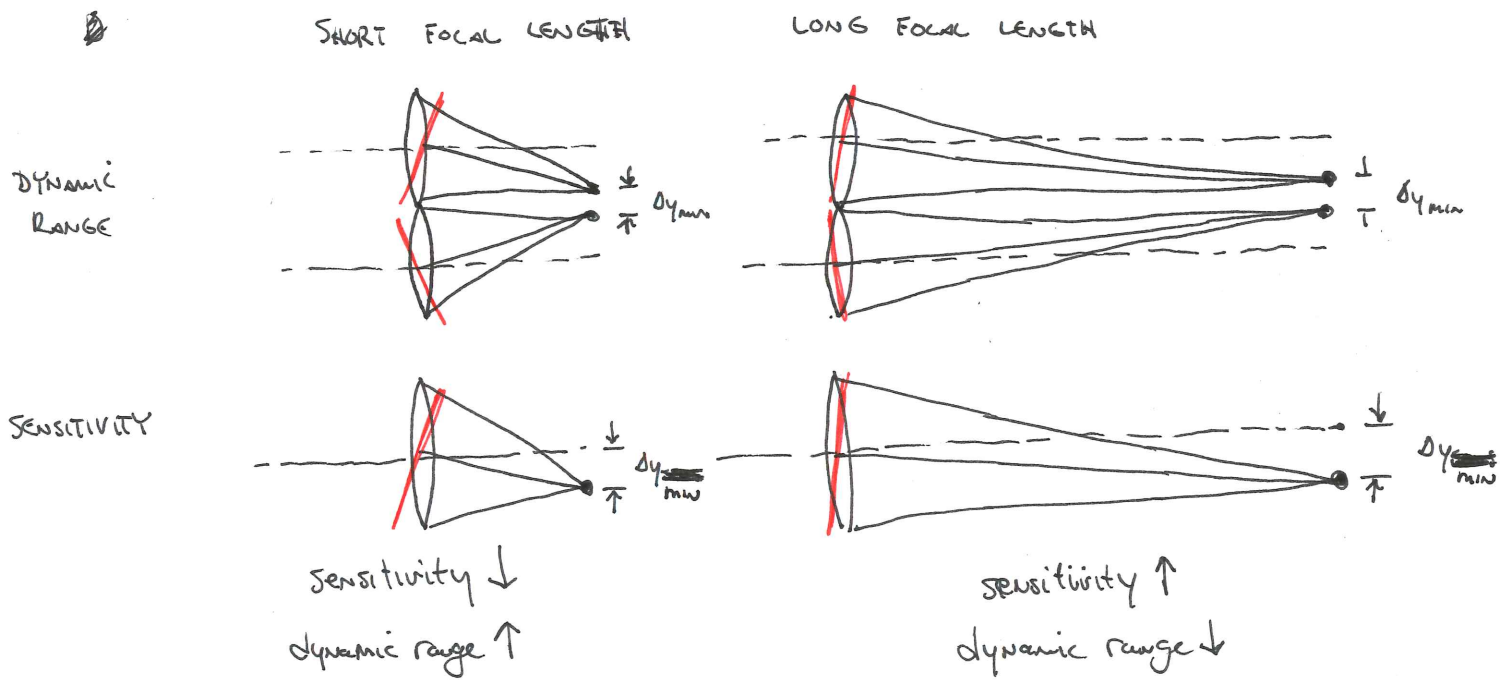 SHORT FOCAL LENGTH
LONG FOCAL LENGTH
DYNAMIC
RANGE
Δy MIN
Δy MIN
SENSITIVITY
Δy MIN
Δy MIN
sensitivity ↓
sensitivity ↑
dynamic range ↑
dynamic range ↓